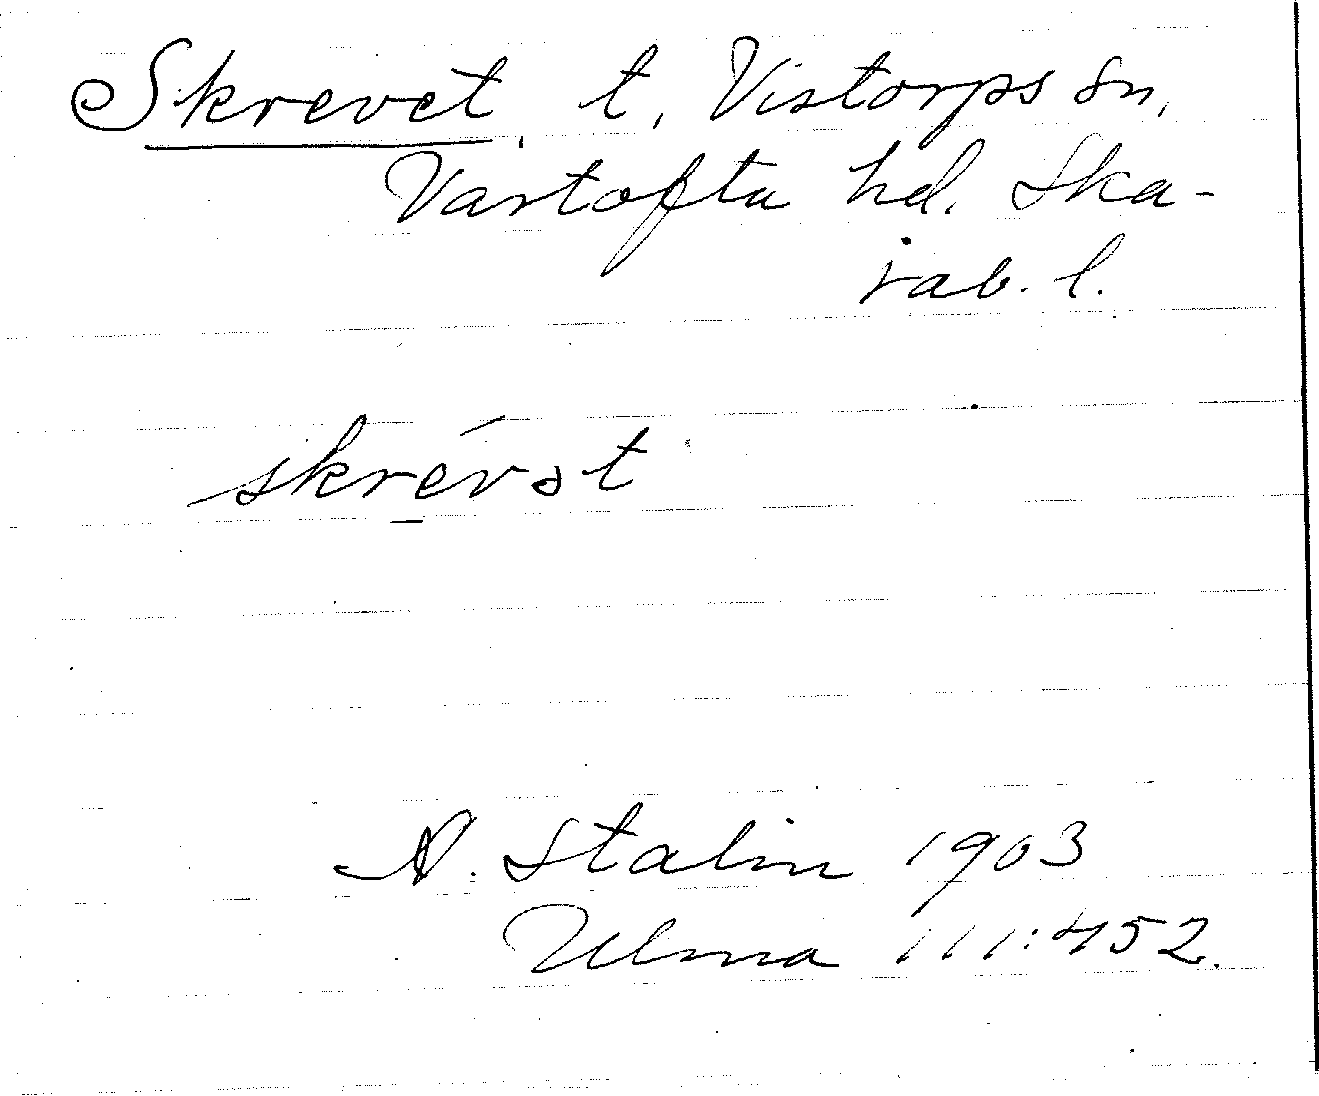 Skrevet, t, Vistorps sn,
Vartofta hd. Ska-
rab. l.
skrévət
A. Stalin 1903
Ulma 111:452.